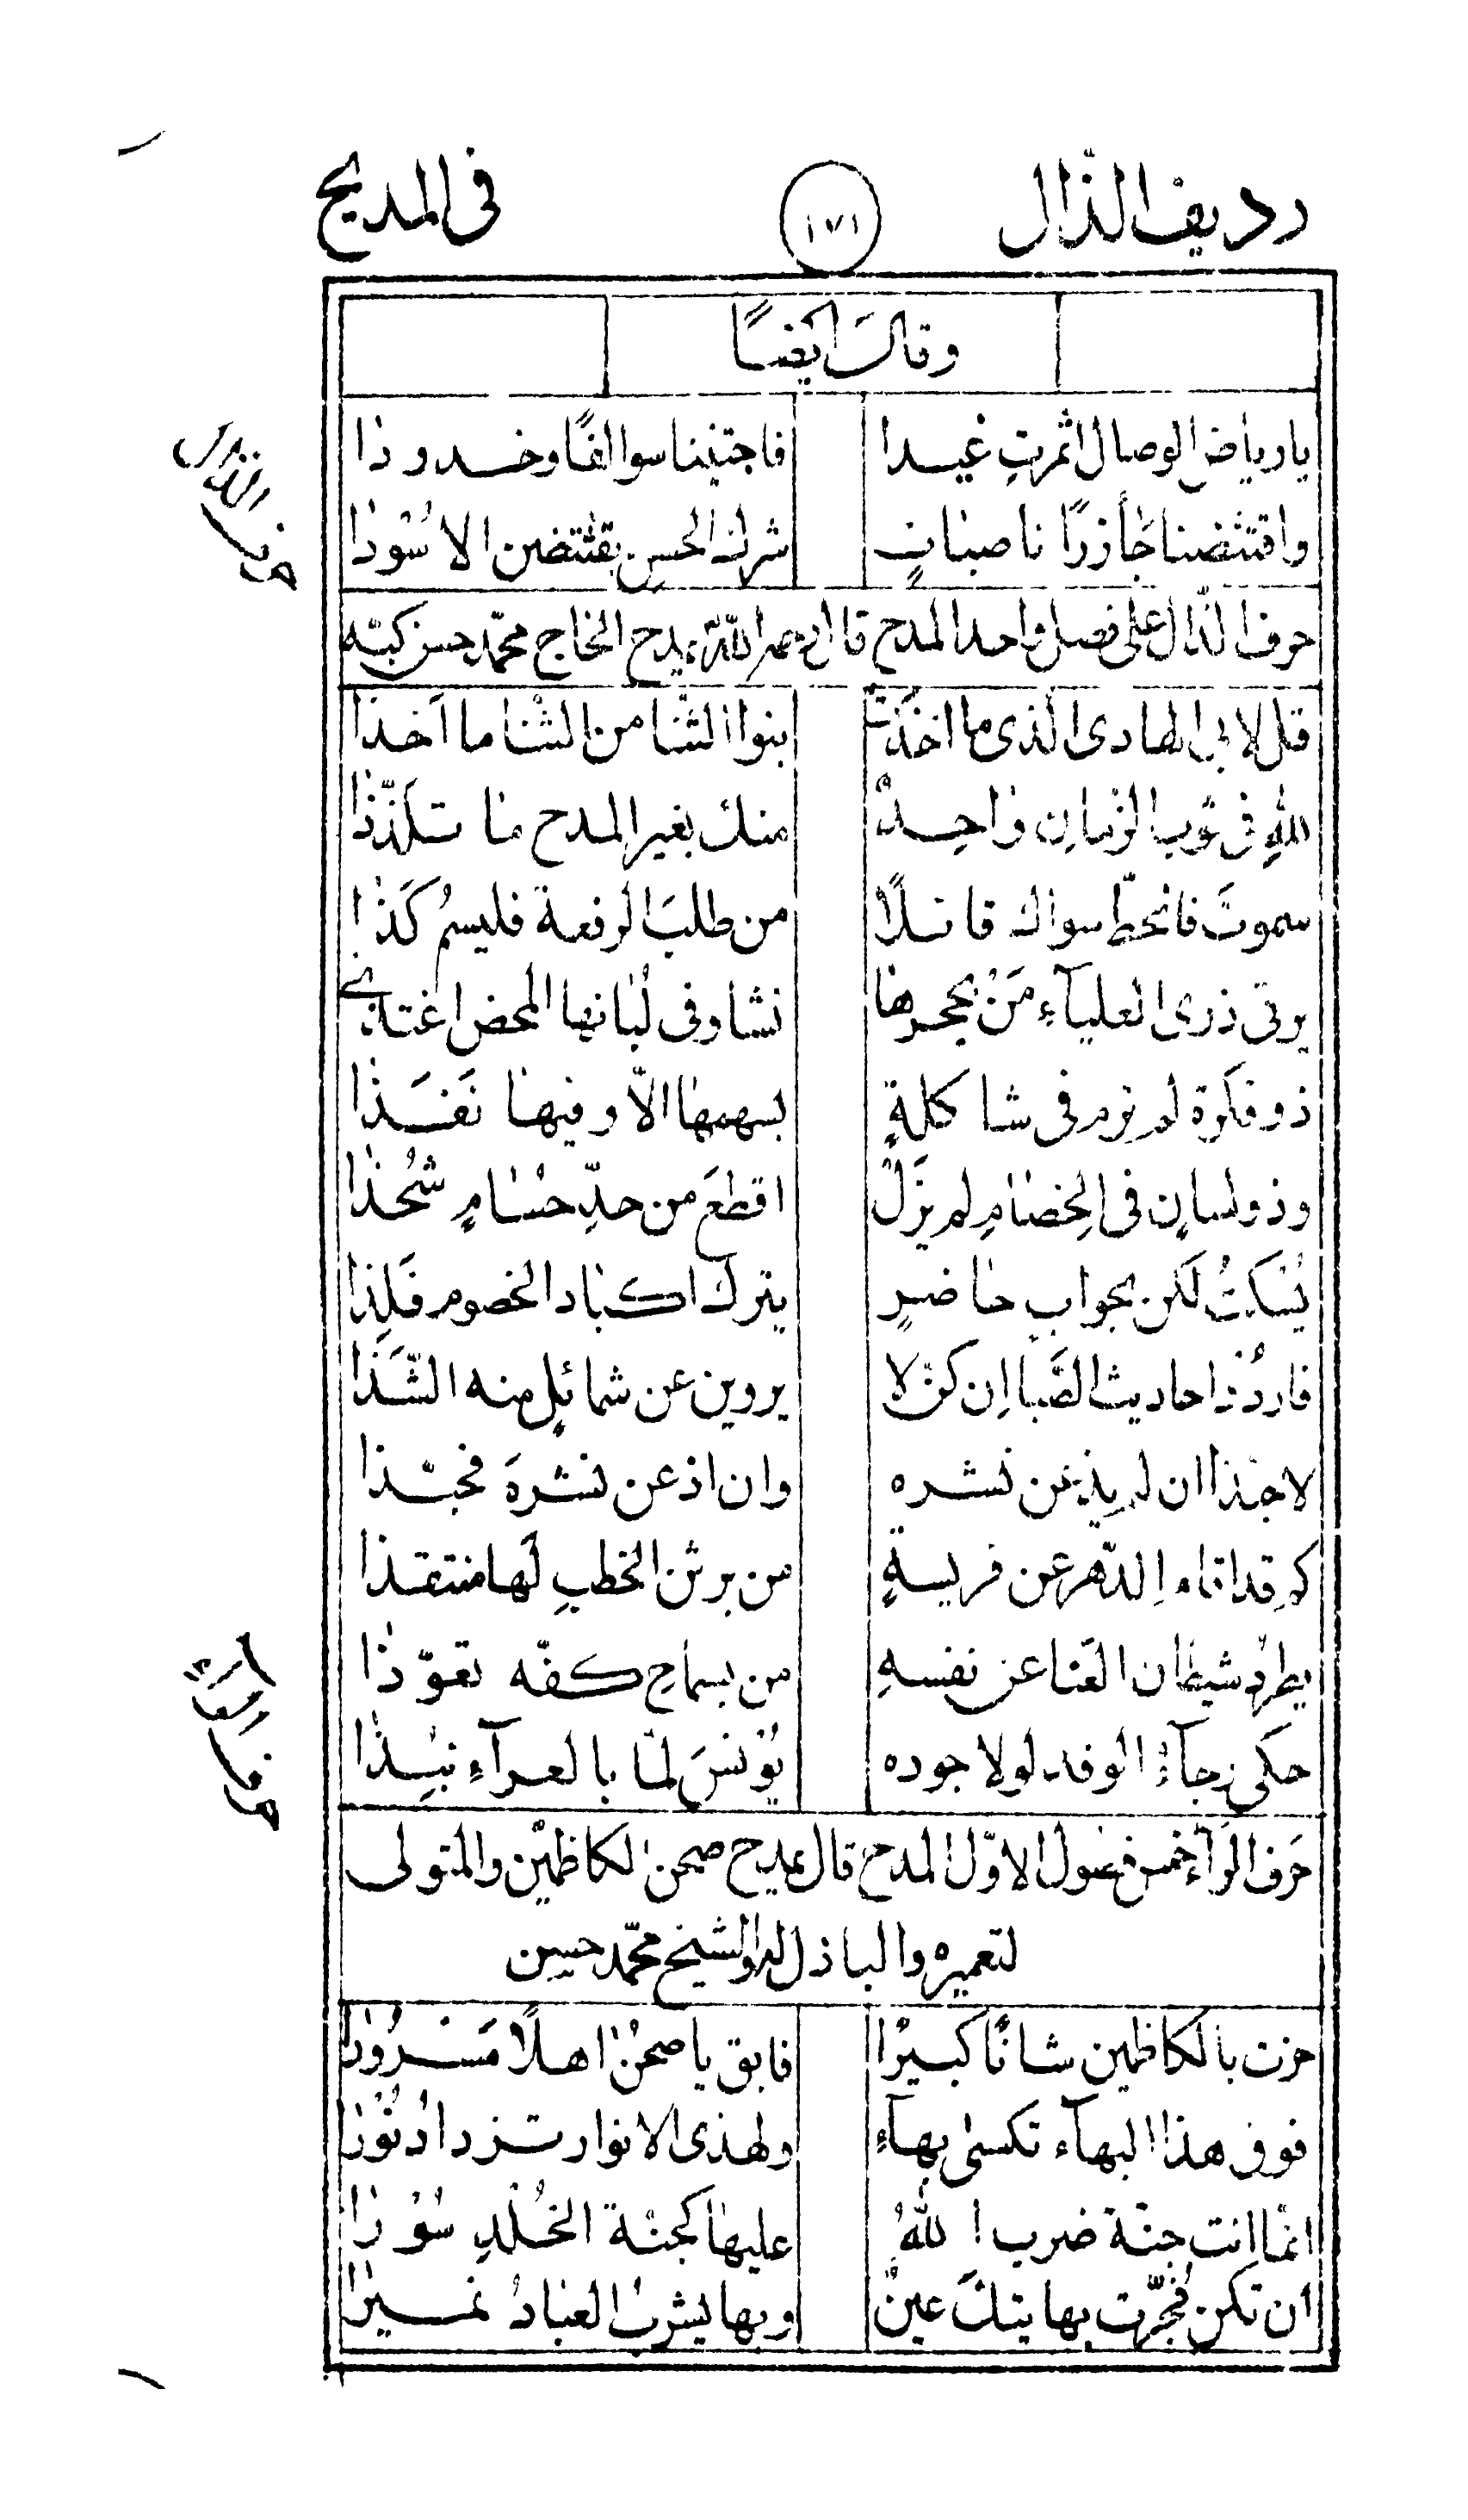 رديف الذال ١٧١ فى المديح
وقال ايضًا
يا رياض الوصال اثمرتِ غيدا فاجتنينا سوالفًا وخدودا
واقتنصنا جأذرًا ناصباتٍ شرك الحسن يقتنصن الاسُوْدا
حرف الذال
حرف الذال على فصل واحد المدح قال رحمه الله يمدح الحاج محمّد حسن كبّه
قل لابى الهادى الذى ما اخذَتْ بنوا الثنا من الثنا ما اَخذا
للهِ فى ثوب الزمانِ واحِدٌ منك بغير المدح ما تلذّذا
سموتَ فانحطّ سواك قائلًا من طلبَ الرفعة فليسمُ كَذا
يرقى ذرى العليآءِ مَنْ بحجرها نشا وفى لُبانها المحض اغتذى
ذو فكرة لم ترم فى شاكلةٍ بسهمها الّا وفيها نَفَذا
وذو لسانٍ فى الخِصامِ لم يزَلْ اقطعَ من حدِّ حُسامٍ شُحُذا
يُسْكتُ لكن بجوابٍ حاضرٍ يترك اكباد الخصوم فَلِذا
فاردُدْ احاديث الصَّبا اِن كنّ لا يروين عن شمائلٍ منه الشَّذا
لا حبّذا ان لم يذعن نشره وان اذعن نشرهَ فحبّذا
كم قد اقام الدّهر عن فريسةٍ من برثن الخطبِ لها منتقذا
يطردُ شيطان العَنا عن نفسهِ من بسماحِ كفّه تعوّذا
حكى رجآءُ الوفد لولا جوده يؤنسَ لمّا بالعرآءِ نُبِذا
حرف الرآء
حَرف الرآء خمس فصول الاوّل المدح قال يمدح صحن الكاظمين والمتولى
لتعميره والباذل له الشيخ محمّد حسين
حزت بالكاظمين شانًا كبيرًا فابق يا صحن اهلًا مَسْرورا
فوق هذا البهآء تكسى بهآءِ ولهذى الانوار تزداد نُورًا
انما انت جنّة ضرب اللهُ عليها كجنّة الخُلدِ سُوْرا
ان تكن فُجّرت بهاتيك عينٌ وبها يشرب العبادُ نميرا